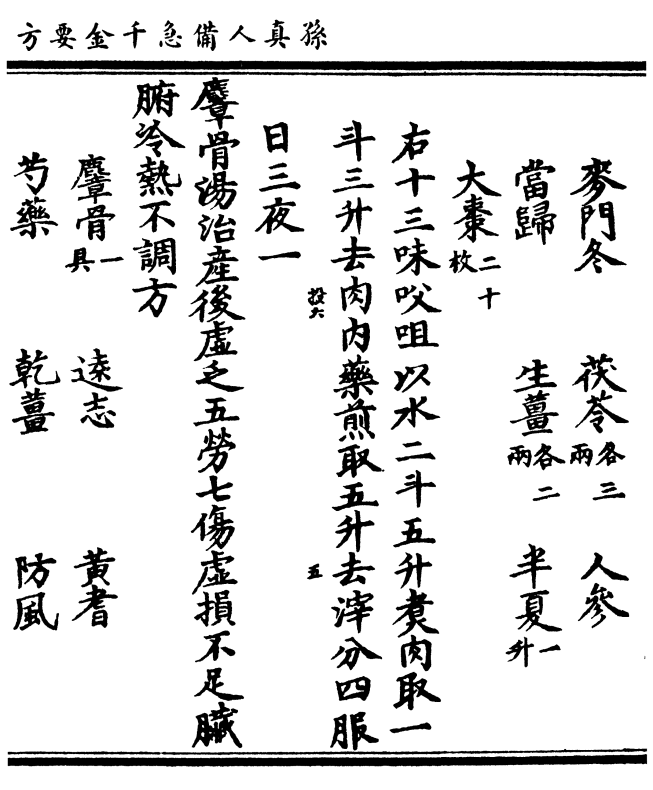 孫真人備急千金要方
麥門冬 茯苓各三兩 人參
當歸 生薑各二兩 半夏一升
大棗二十枚
右十三味㕮咀以水二斗五升煑肉取一
斗三升去肉内藥煎取五升去滓分四服
投六 五
日三夜一
麞骨湯治産後虛乏五勞七傷虛損不足臓
腑冷熱不調方
麞骨一具 遠志 黄耆
芍藥 乾薑 防風